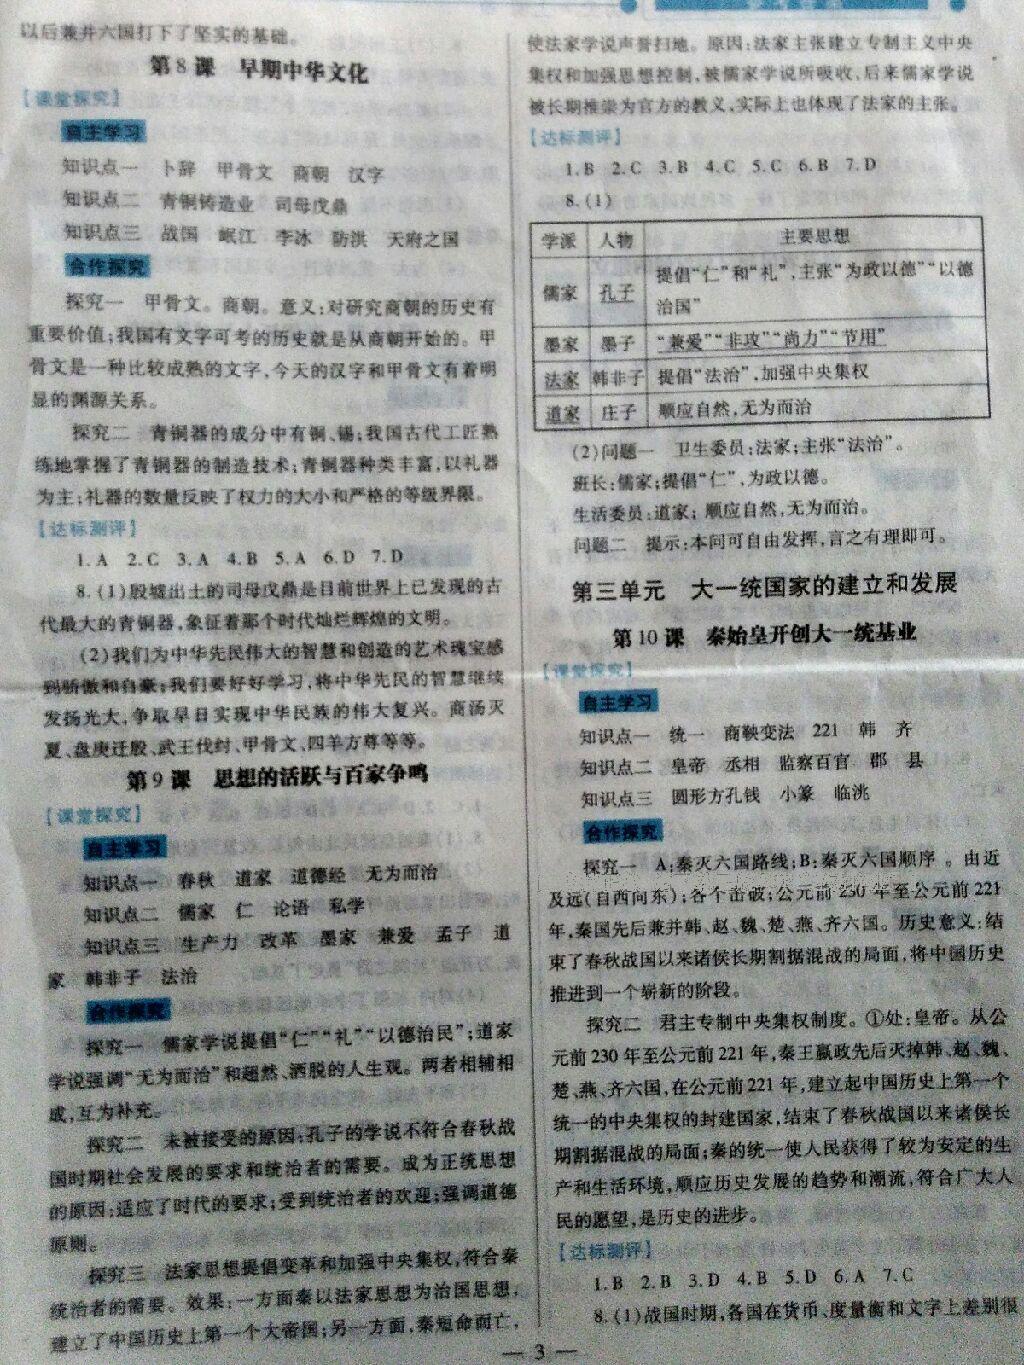 以后兼并六国打下了坚实的基础。
第8课 早期中华文化
【课堂探究】
自主学习
知识点一 卜辞 甲骨文 商朝 汉字
知识点二 青铜铸造业 司母戊鼎
知识点三 战国 岷江 李冰 防洪 天府之国
合作探究
探究一 甲骨文。商朝。意义:对研究商朝的历史有
重要价值;我国有文字可考的历史就是从商朝开始的。甲
骨文是一种比较成熟的文字,今天的汉字和甲骨文有着明
显的渊源关系。
探究二 青铜器的成分中有铜、锡;我国古代工匠熟
练地掌握了青铜器的制造技术;青铜器种类丰富,以礼器
为主;礼器的数量反映了权力的大小和严格的等级界限。
【达标测评】
1.A 2.C 3.A 4.B 5.A 6.D 7.D
8.(1)殷墟出土的司母戊鼎是目前世界上已发现的古
代最大的青铜器,象征着那个时代灿烂辉煌的文明。
(2)我们为中华先民伟大的智慧和创造的艺术瑰宝感
到骄傲和自豪;我们要好好学习,将中华先民的智慧继续
发扬光大,争取早日实现中华民族的伟大复兴。商汤灭
夏、盘庚迁殷、武王伐纣、甲骨文、四羊方尊等等。
第9课 思想的活跃与百家争鸣
【课堂探究】
自主学习
知识点一 春秋 道家 道德经 无为而治
知识点二 儒家 仁 论语 私学
知识点三 生产力 改革 墨家 兼爱 孟子 道
家 韩非子 法治
合作探究
探究一 儒家学说提倡“仁”“礼”“以德治民”;道家
学说强调“无为而治”和超然、洒脱的人生观。两者相辅相
成,互为补充。
探究二 未被接受的原因:孔子的学说不符合春秋战
国时期社会发展的要求和统治者的需要。成为正统思想
的原因:适应了时代的要求;受到统治者的欢迎;强调道德
原则。
探究三 法家思想提倡变革和加强中央集权,符合秦
统治者的需要。效果:一方面秦以法家思想为治国思想,
建立了中国历史上第一个大帝国;另一方面,秦短命而亡,
使法家学说声誉扫地。原因:法家主张建立专制主义中央
集权和加强思想控制,被儒家学说所吸收,后来儒家学说
被长期推崇为官方的教义,实际上也体现了法家的主张。
【达标测评】
1.B 2.C 3.B 4.C 5.C 6.B 7.D
8.(1)
学派 人物 主要思想
儒家 孔子 提倡“仁”和“礼”,主张“为政以德”“以德
治国”
墨家 墨子 “兼爱”“非攻”“尚力”“节用”
法家 韩非子 提倡“法治”,加强中央集权
道家 庄子 顺应自然,无为而治
(2)问题一 卫生委员:法家;主张“法治”。
班长:儒家;提倡“仁”,为政以德。
生活委员:道家;顺应自然,无为而治。
问题二 提示:本问可自由发挥,言之有理即可。
第三单元 大一统国家的建立和发展
第10课 秦始皇开创大一统基业
【课堂探究】
自主学习
知识点一 统一 商鞅变法 221 韩 齐
知识点二 皇帝 丞相 监察百官 郡 县
知识点三 圆形方孔钱 小篆 临洮
合作探究
探究一 A:秦灭六国路线;B:秦灭六国顺序。由近
及远(自西向东);各个击破;公元前230年至公元前221
年,秦国先后兼并韩、赵、魏、楚、燕、齐六国。历史意义:结
束了春秋战国以来诸侯长期割据混战的局面,将中国历史
推进到一个崭新的阶段。
探究二 君主专制中央集权制度。①处:皇帝。从公
元前230年至公元前221年,秦王嬴政先后灭掉韩、赵、魏、
楚、燕、齐六国,在公元前221年,建立起中国历史上第一个
统一的中央集权的封建国家,结束了春秋战国以来诸侯长
期割据混战的局面;秦的统一使人民获得了较为安定的生
产和生活环境,顺应历史发展的趋势和潮流,符合广大人
民的愿望,是历史的进步。
【达标测评】
1.B 2.B 3.D 4.B 5.D 6.A 7.C
8.(1)战国时期,各国在货币、度量衡和文字上差别很
— 3 —